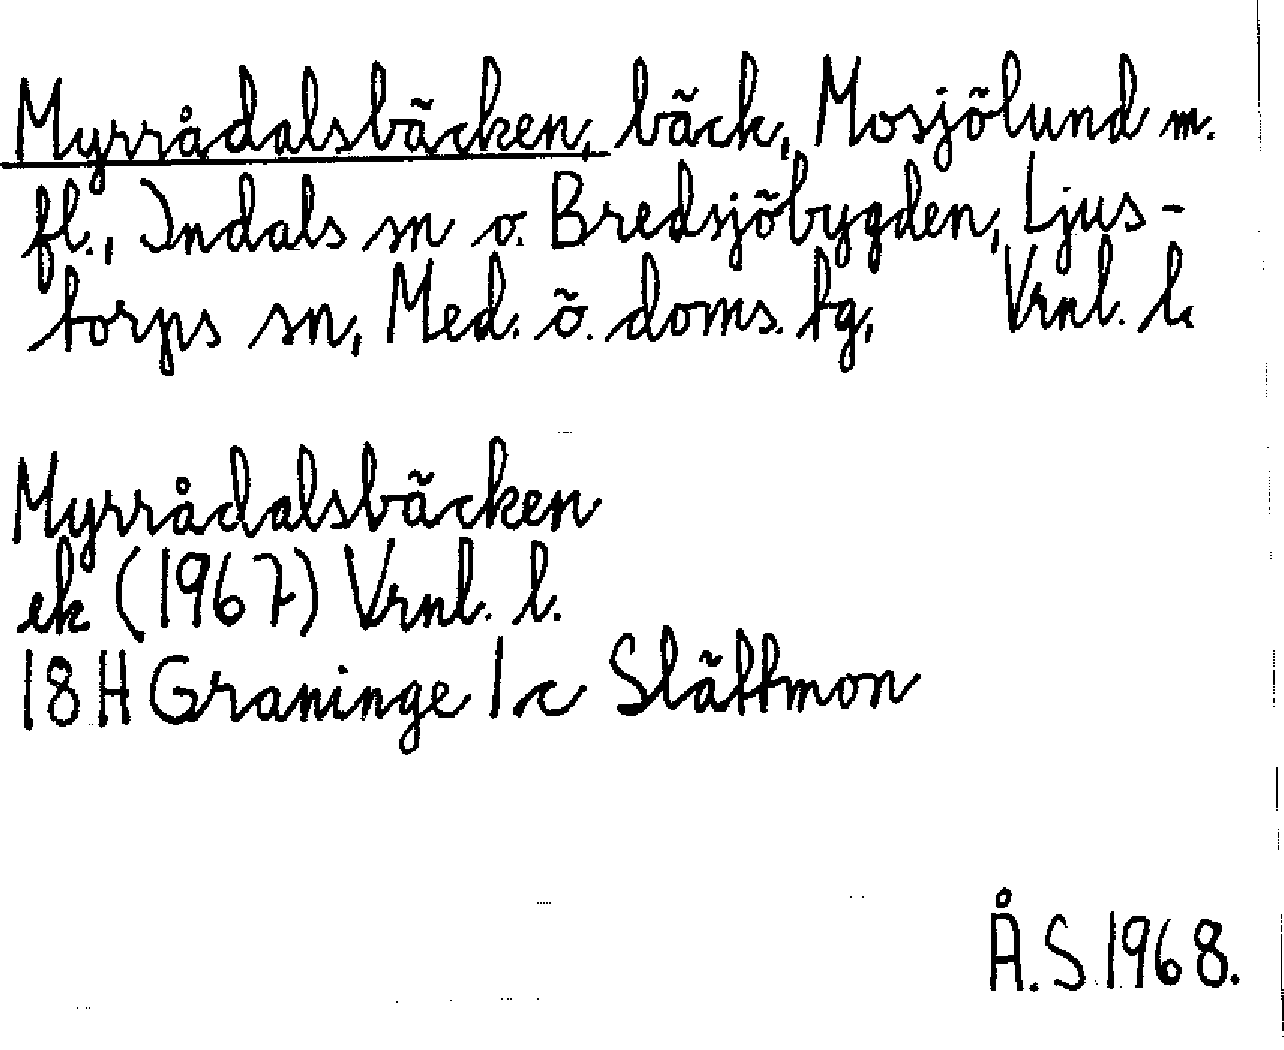 Myrrådalsbäcken, bäck, Mosjölund m.
fl., Indals sn o. Bredsjöbygden, Ljus-
torps sn, Med. ö. doms. tg, Vrnl. l.
Myrrådalsbäcken
ek (1967) Vrnl. l.
18H Graninge 1c Slättmon
Å.S.1968.